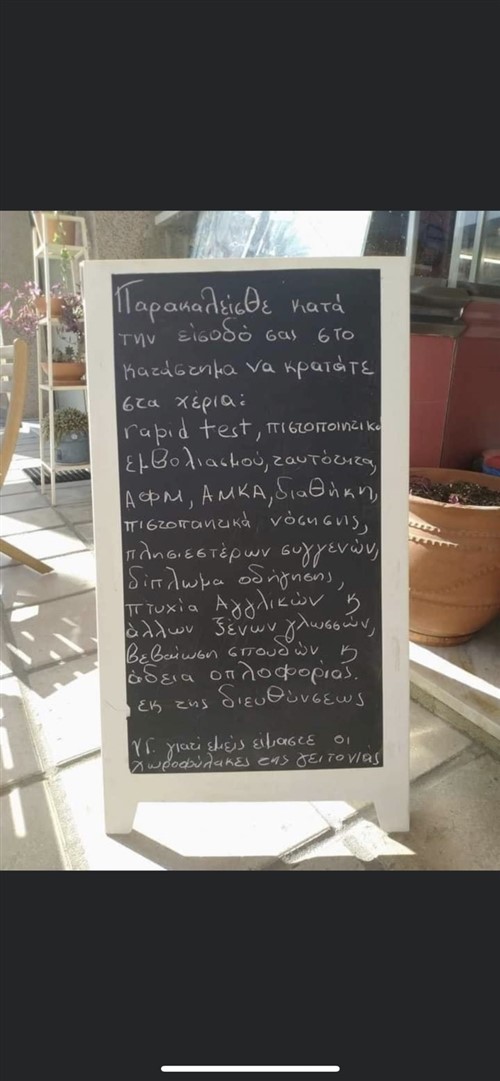 Παρακαλείσθε κατά
την είσοδό σας στο
κατάστημα να κρατάτε
στα χέρια:
rapid test, πιστοποιητικό
εμβολιασμού, ταυτότητα,
ΑΦΜ, ΑΜΚΑ, διαθήκη,
πιστοποιητικά νόσησης,
πλησιεστέρων συγγενών,
δίπλωμα οδήγησης,
πτυχία Αγγλικών &
άλλων ξένων γλωσσών,
βεβαίωση σπουδών &
άδεια οπλοφορίας.
εκ της διευθύνσεως
ΥΓ. γιατί εμείς είμαστε οι
χωροφύλακες της γειτονιάς